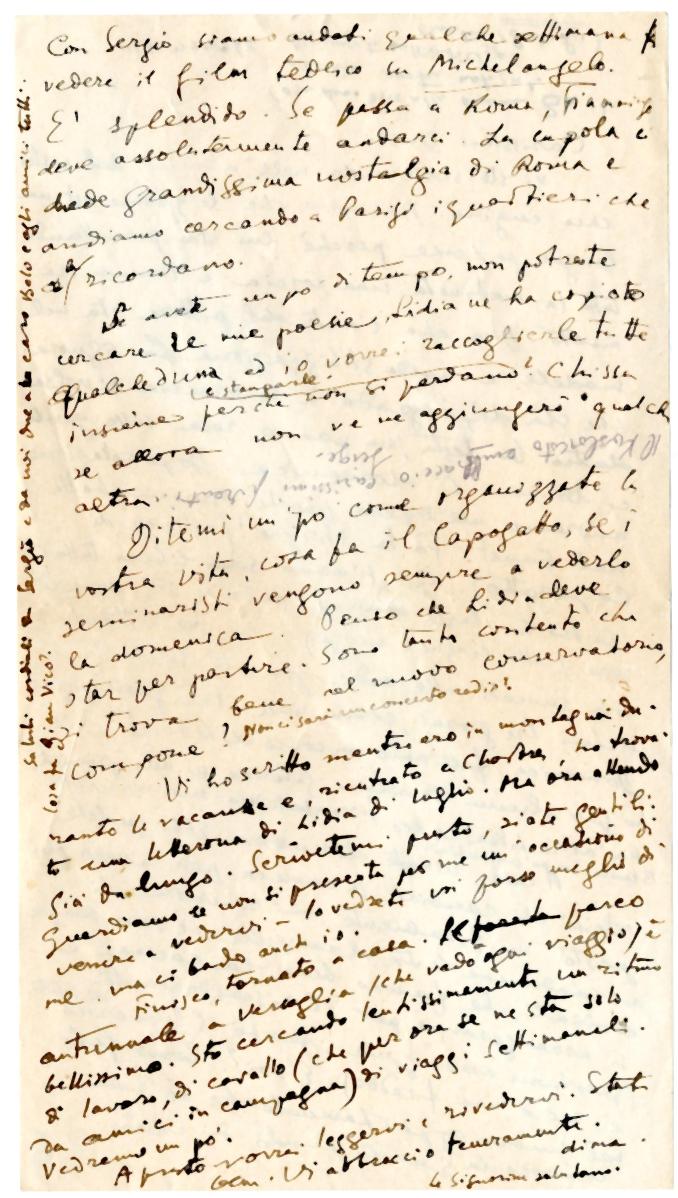 Con Sergio siamo andati qualche settimana fa
vedere il film tedesco su Michelangelo.
E' splendido. Se passa a Roma,
deve assolutamente andarci. La cupola ci
diede grandissima nostalgia di Roma e
andiamo cercando a Parigi i quartieri che
la ricordano.
Se avete un po di tempo, non potreste
cercare le mie poesie, Lidia ne ha copiato
qualcheduna ed io vorrei raccoglierle tutte
e stamparle
insieme perché non si perdano! Chissà
se allora non ve ne aggiungerò qualche
altra.
Ditemi un po' come organizzate la
vostra vita, cosa fa il Capogatto, se i
seminaristi vengono sempre a vederlo
la domenica. Penso che Lidia deve
star per partire. Sono tanto contento che
si trova bene nel nuovo conservatorio,
compone? Non ci sarà un concerto radio?
Vi ho scritto mentre ero in montagna du-
rante le vacanze e, rientrato a Chartres, ho trova-
to una letterona di Lidia di luglio. Ma ora attendo
già da lungo. Scrivetemi presto, siate gentili.
Guardiamo se non si presenta per me un' occasione di
venire a vedervi - lo vedrete voi forse meglio di
me. ma ci bado anch io.
Finisco, tornato a casa. Il parco
autunnale a Versaglia (che vado ogni viaggio) è
bellissimo. Sto cercando lentissimamente un ritmo
di lavoro, di cavallo (che per ora se ne sta solo
da amici in campagna) di viaggi settimanali.
Vedremo un po'.
A presto vorrei leggervi e rivedervi. State
bene. Vi abbraccio teneramente.
dima.
le Signorine salutano.
Saluti cordiali a Sergio e da noi due al caro Bolo e agli amici tutti.
Cosa fa Gian Vico?